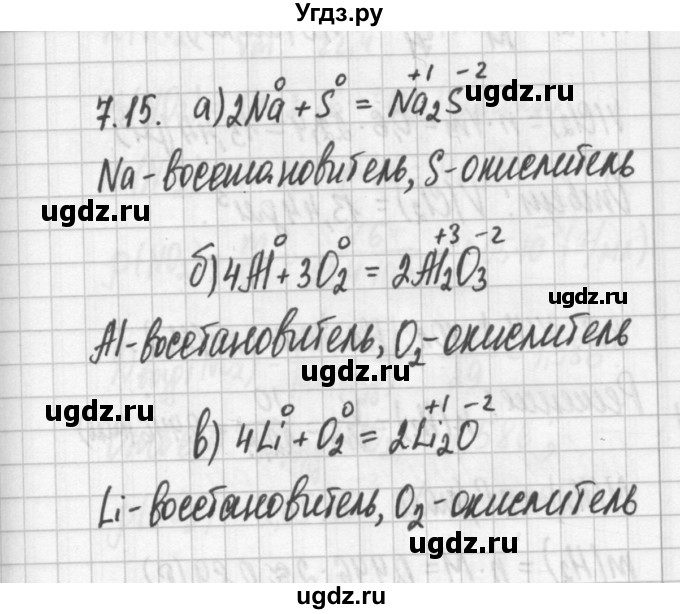 Угдз.ру
7.15. а) 2Na⁰ + S⁰ = Na₂⁺¹S⁻²
ugdz.ru
Na - восстановитель, S - окислитель
ugdz.ru
ugdz.ru
б) 4Al⁰ + 3O₂⁰ = 2Al₂⁺³O₃⁻²
ugdz.ru
Al - восстановитель, O₂ - окислитель
ugdz.ru
ugdz.ru
в) 4Li⁰ + O₂⁰ = 2Li₂⁺¹O⁻²
Li - восстановитель, O₂ - окислитель
ugdz.ru
ugdz.ru